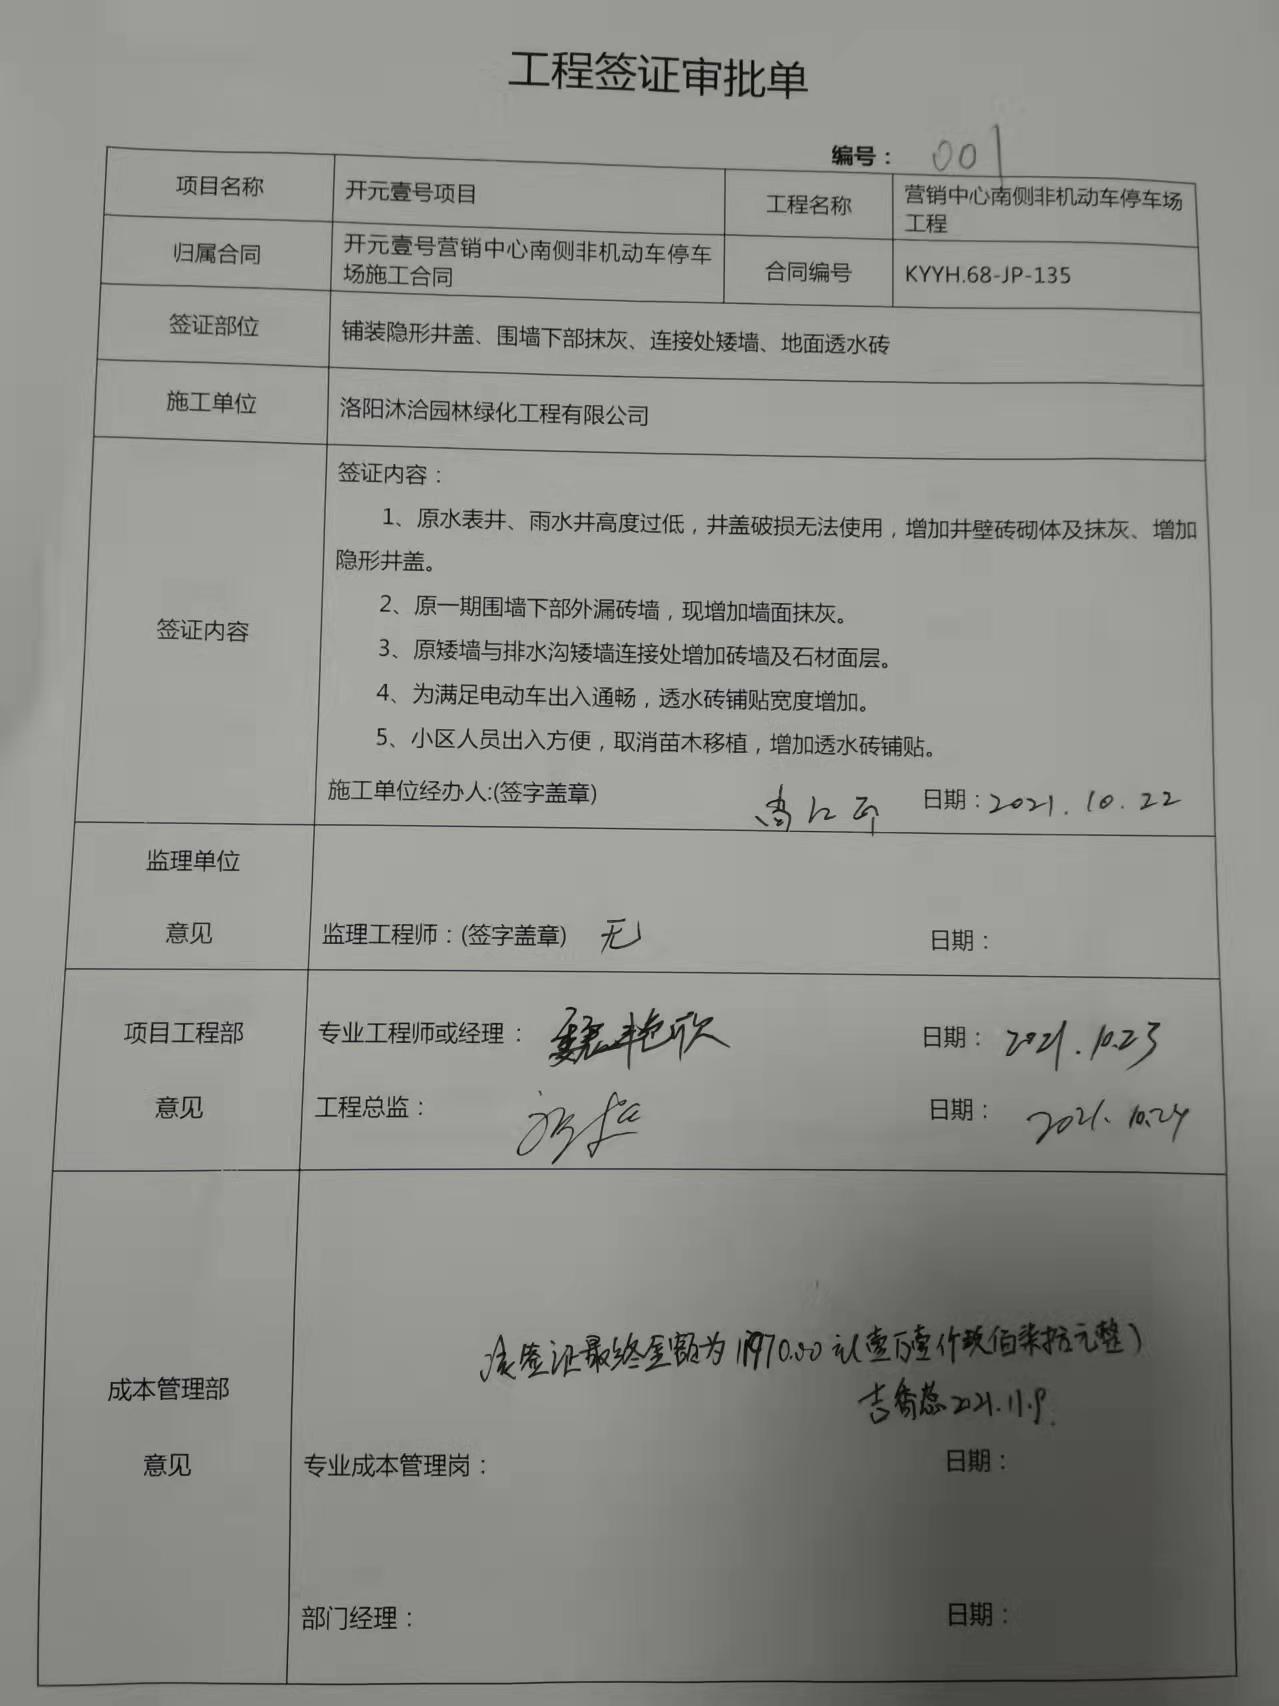 工程签证审批单
编号： 001
项目名称 开元壹号项目 工程名称 营销中心南侧非机动车停车场
工程
归属合同 开元壹号营销中心南侧非机动车停车
场施工合同 合同编号 KYYH.68-JP-135
签证部位 铺装隐形井盖、围墙下部抹灰、连接处矮墙、地面透水砖
施工单位 洛阳沐洽园林绿化工程有限公司
签证内容
签证内容：
1、原水表井、雨水井高度过低，井盖破损无法使用，增加井壁砖砌体及抹灰、增加
隐形井盖。
2、原一期围墙下部外漏砖墙，现增加墙面抹灰。
3、原矮墙与排水沟矮墙连接处增加砖墙及石材面层。
4、为满足电动车出入通畅，透水砖铺贴宽度增加。
5、小区人员出入方便，取消苗木移植，增加透水砖铺贴。
施工单位经办人:(签字盖章) 日期：2021.10.22
监理单位
意见
监理工程师：(签字盖章) 无 日期：
项目工程部
意见
专业工程师或经理： 日期： 2021.10.23
工程总监： 日期： 2021.10.24
成本管理部
意见
该签证最终金额为11970.00元(壹万壹仟玖佰柒拾元整)
吉香蕊 2021.11.9.
专业成本管理岗： 日期：
部门经理： 日期：